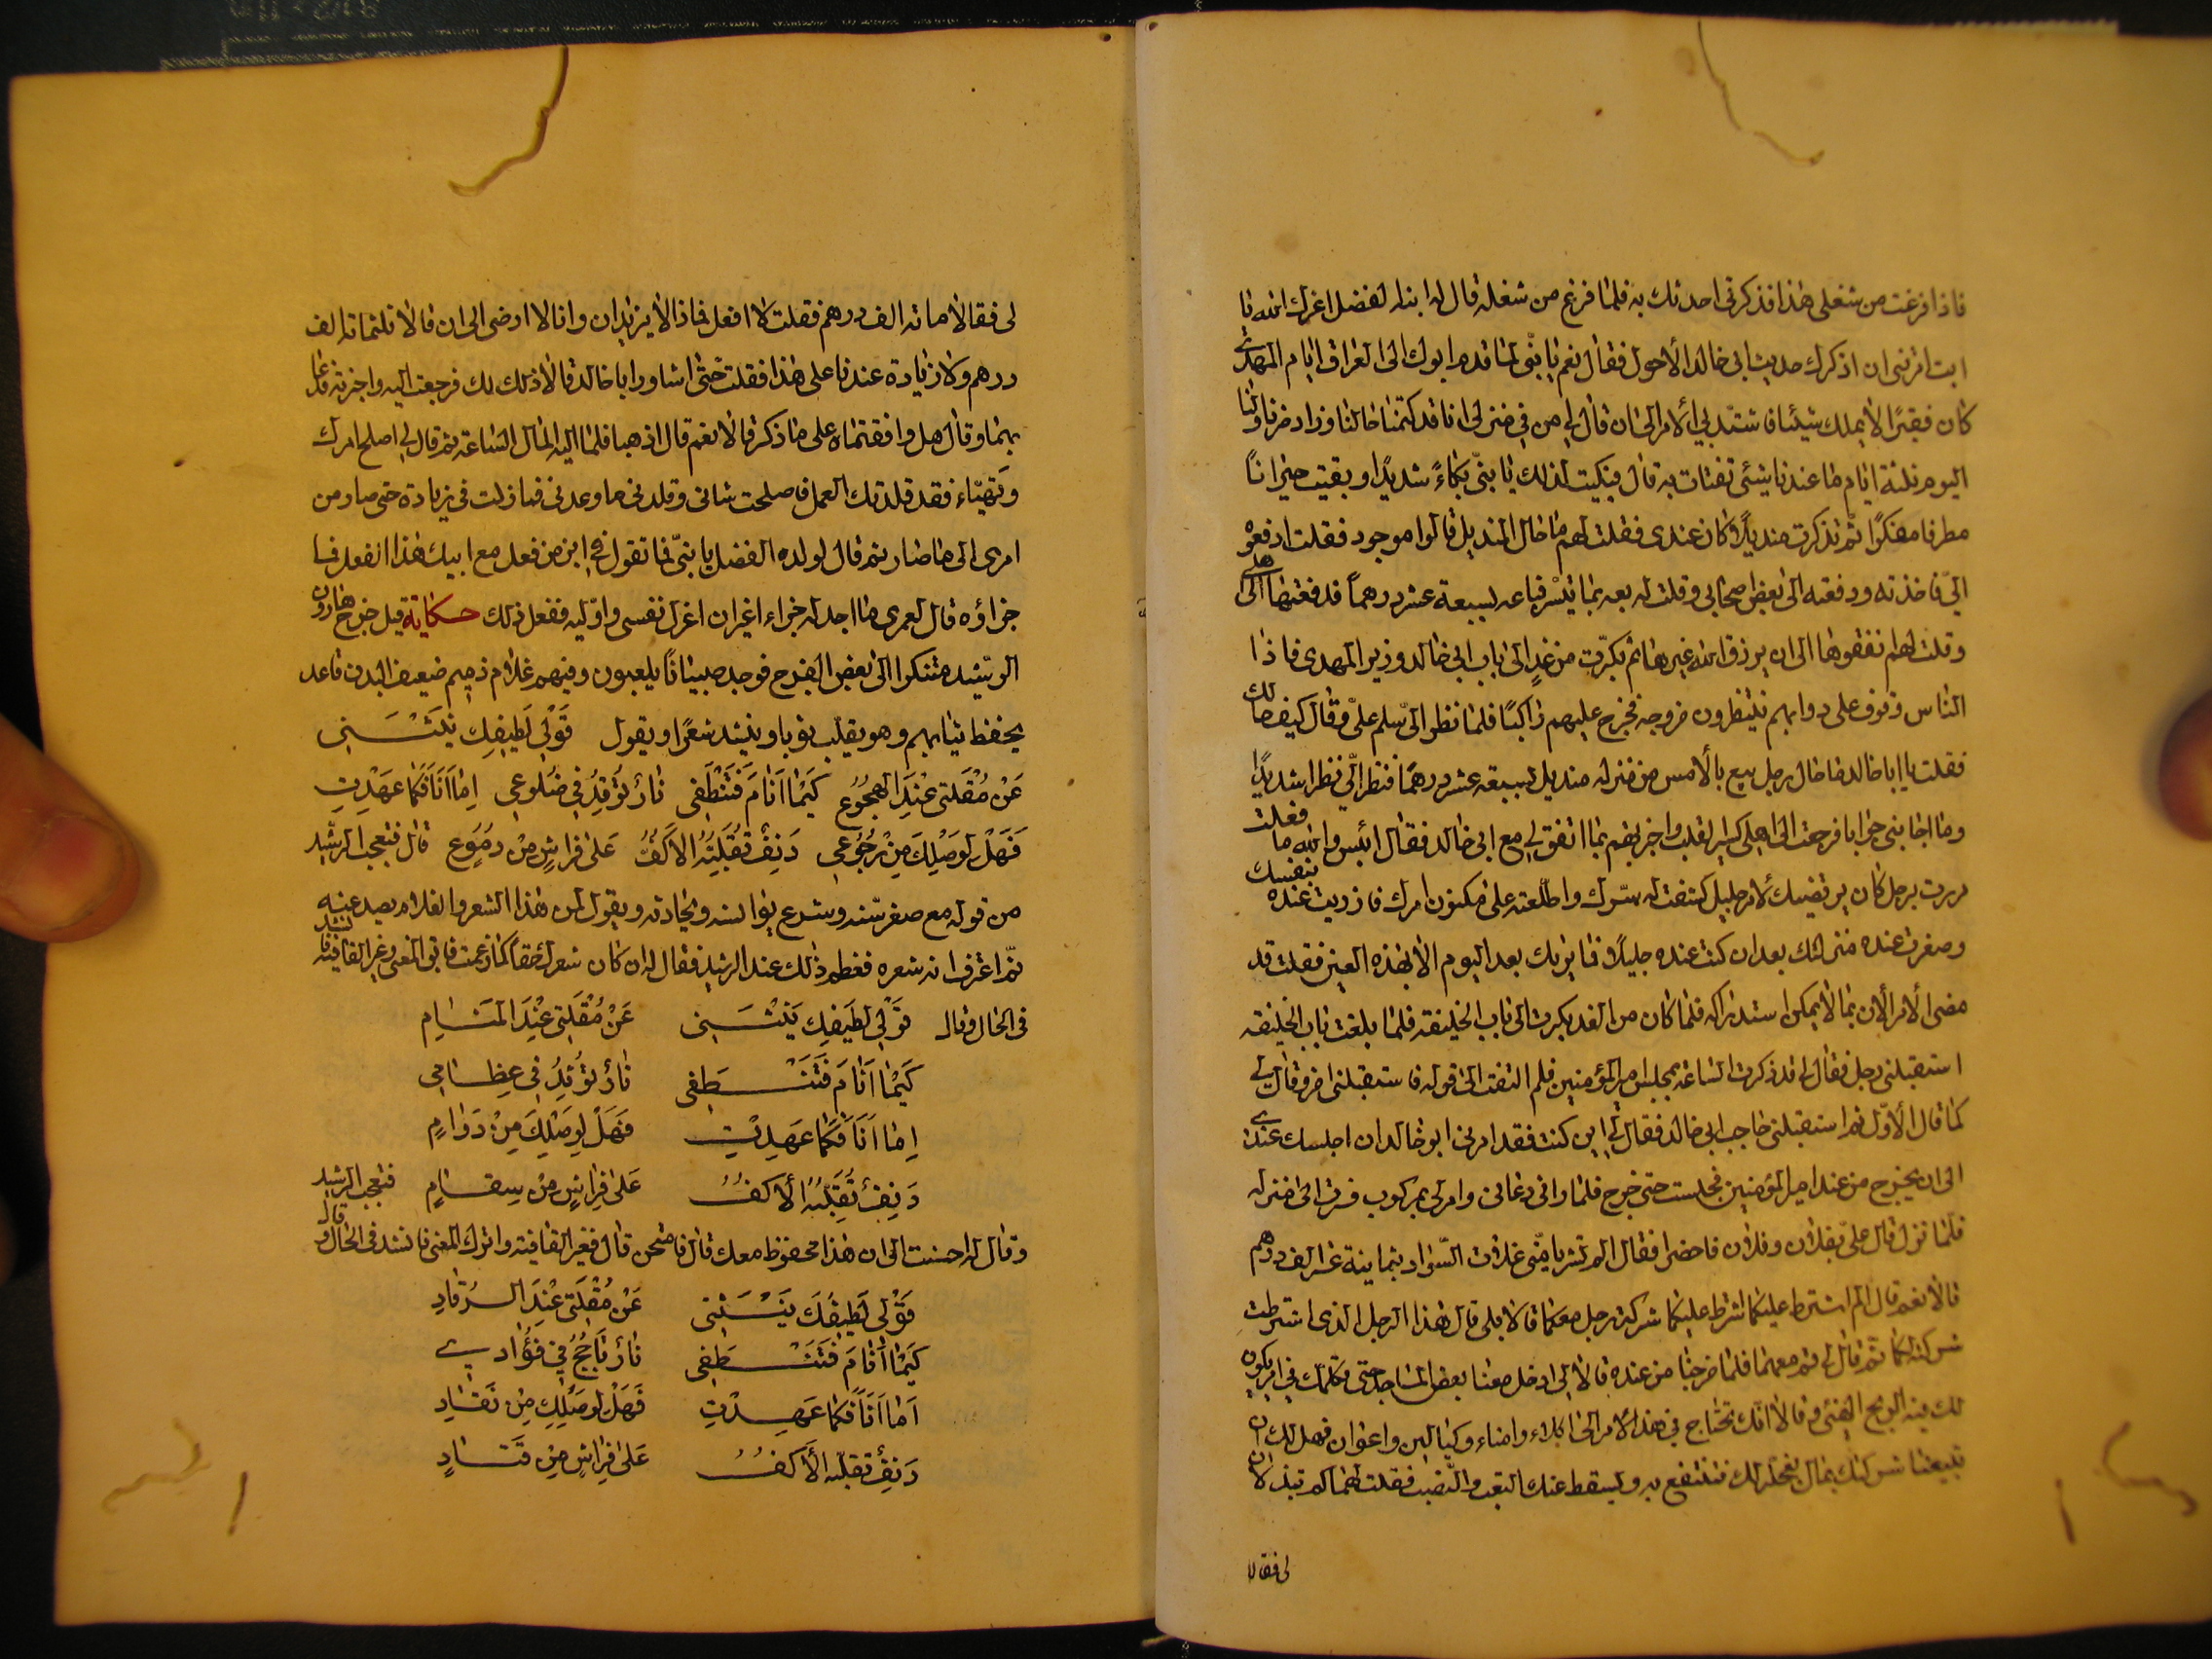 فاذا فرغت من شغلى هذا فذكرنى احدثك به فلما فرغ من شغله قال له ابنه الفضل اعزك الله يا
ابت امرتنى ان اذكرك حديث ابى خالد الأحول فقال نعم يا بنى لما قدم ابوك الى العراق ايام المهدى
كان فقيرًا لا يملك شيئا فاشتد بى الأمر الى ان قال لى من فى منزلى انا قد كتمنا حالنا وزاد ضرنا ولنا
اليوم ثلثة ايام ما عندنا شئ نقتات به قال فبكيت لذلك يا بنى بكاءً شديدًا وبقيت حيرانًا
مطرقا مفكرًا ثم تذكرت منديلًا كان عندى فقلت لهم ما حال المنديل قالوا موجود فقلت ادفعوه
الىّ فاخذته ودفعته الى بعض اصحابى وقلت له بعه بما تيسر فباعه بسبعة عشر درهمًا فدفعتها الى اهلى
وقلت لهم انفقوها الى ان يرزق الله غيرها ثم بكرت من غدٍ الى باب ابى خالد وزير المهدى فاذا
الناس وقوف على دوابهم ينتظرون خروجه فخرج عليهم راكبًا فلما نظر الىّ سلم علىّ وقال كيف حالك
فقلت يا ابا خالد ما حال رجل يبيع بالأمس من منزله منديل بسبعة عشر درهمًا فنظر الىّ نظرا شديدًا
وما اجابنى جوابا فرجعت الى اهلى كسير القلب واخبرتهم بما اتفق لى مع ابى خالد فقال ابئس والله ما فعلت بنفسك
مررت برجل كان يرتضيك لأمر جليل كشفت له سرك واطلعته على مكنون امرك فازريت عنده
وصغرت عنده منزلتك بعد ان كنت عنده جليلًا فما يريك بعد اليوم الا بهذه العين فقلت قد
مضى الأمر الأن بما لا يمكن استدراكه فلما كان من الغد بكرت الى باب الخليفة فلما بلغت باب الخليفة
استقبلنى رجل فقال لى قد ذكرت الساعة بمجلس امير المؤمنين فلم التفت الى قوله فاستقبلنى اخر وقال لى
كما قال الأول ثم استقبلنى حاجب ابى خالد فقال لى اين كنت فقد امرنى ابو خالد ان اجلسك عندى
الى ان يخرج من عند امير المؤمنين فجلست حتى خرج فلما رانى دعانى وامر لى بمركوب فسرت الى منزله
فلما نزل قال علىّ بفلان وفلان فاحضرا فقال الم تشتريا منى غلات السواد بثمانية عشر الف درهم
قالا نعم قال الم اشترط عليكما شركة رجل معكما قالا بلى قال هذا الرجل الذى اشترطت
شركته لكما ثم قال لى قم معهما فلما خرجنا من عنده قالا لى ادخل معنا بعض المساجد حتى نكلمك فى امر يكون
لك فيه الربح الهنئ فقالا انك تحتاج فى هذا الأمر الى وكلاء وامناء وكيالين واعوان فهل لك ان
تبيعنا شركتك بمال نعجله لك فتنتفع به ويسقط عنك التعب والنصب فقلت لهما كم تبذلان
لى فقالا
لى فقالا مائة الف درهم فقلت لا افعل فما زالا يزيدان وانا لا ارضى الى ان قالا ثلثمائة الف
درهم ولا زيادة عندنا على هذا فقلت حتى اشاور ابا خالد قالا ذلك لك فرجعت اليه واخبرته فدعا
بهما وقال هل وافقتماه على ما ذكر قالا نعم قال اذهبا فسلما اليه المال الساعة ثم قال لى اصلح امرك
وتهيّاء فقد قلدتك العمل فاصلحت شانى وقلدنى ما وعدنى فما زلت فى زيادة حتى صار من
امرى الى ما صار ثم قال لولده الفضل يا بنى فما تقول فى ابن من فعل مع ابيك هذا الفعل فما
جزاؤه قال لعمرى ما اجد له جزاء غير ان اعزل نفسى واوليه ففعل ذلك حكاية قيل خرج هارون
الرشيد متنكرا الى بعض الفرج فوجد صبيانًا يلعبون وفيهم غلام ذميم ضعيف البدن قاعد
يحفظ ثيابهم وهو يقلب ثوبا وينشد شعرًا ويقول قَوْلِى لَطِيفِكِ يَنْثَنِى
عَنْ مُقْلَتى عِنْدَ الهجُوُع كَيْمَا اَنَامَ فَتَنْطَفِى نَارٌ تَوَقَّدُ فِى ضُلوعِى اِمَّا اَنَا فَكَمَا عَهِدْتِ
فَهَلْ لِوَصْلِكَ مِنْ رُجُوُعِى دَنِفٌ تُقَلِّبُهُ الاَكُفُّ عَلى فِرَاشٍ مِنْ دمُوُعِ قال فتعجب الرشيد
من قوله مع صغر سنه وشرع يؤانسه ويحادثه ويقول لمن هذا الشعر والغلام يصد عنه
ثم اعترف انه شعره فعظم ذلك عند الرشيد فقال له ان كان شعرك حقًا كما زعمت فابق المعنى وغير القافية فانشد
فى الحال وقال قَوْلِى لَطِيفِكِ يَنْثَنِى عَنْ مُقْلَتى عِنْدَ المَنَامِ
كَيْمَا اَنَامَ فَتَنْطَفِى نَارٌ تَوَقَّدُ فِى عِظَامِى
اِمَّا اَنَا فَكَمَا عَهِدْتِ فَهَلْ لِوَصْلِكَ مِنْ دَوَامٍ
دَنِفٌ تُقَلِّبُهُ الأكفُّ عَلى فِرَاشٍ مِنْ سِقَامٍ فتعجب الرشيد
وقال له احسنت الا ان هذا محفوظ معك قال فامتحن قال فغير القافية واترك المعنى فانشد فى الحال وقال
قَوْلِى لَطِيفِكَ يَنْثَنِى عَنْ مُقْلَتى عِنْدَ الرُقَادِ
كَيْمَا اَنَامَ فَتَنْطَفِى نَارٌ تَاَجَّجُ فِى فُؤَادِى
اَمَّا اَنَا فَكَمَا عَهِدْتِ فَهَلْ لِوَصْلِكِ مِنْ نَفَادِ
دَنِفٌ تقلبّه الأَكفُّ عَلى فِرَاشٍ مِنْ قَتَادٍ